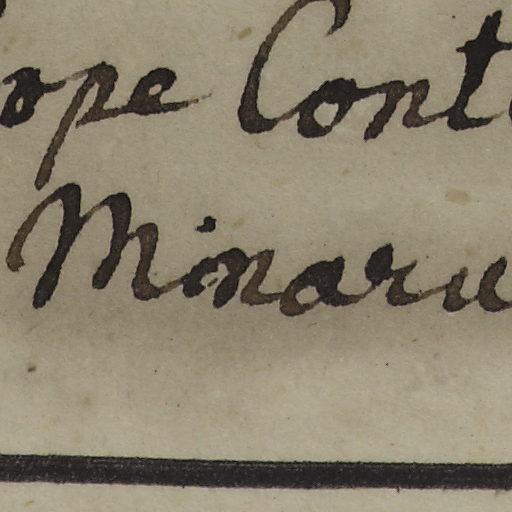 ope Cont
Minaru